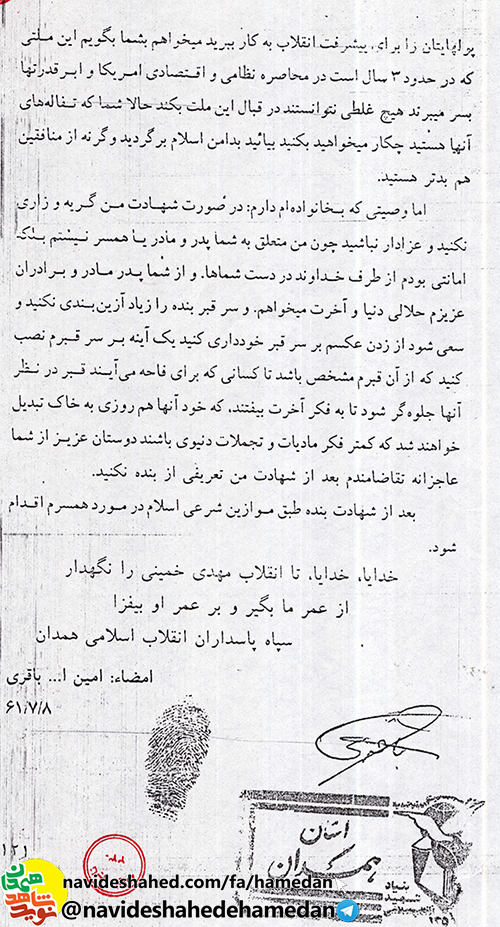 پولهایتان را برای پیشرفت انقلاب به کار ببرید میخواهم بشما بگویم این ملتی
که در حدود ۳ سال است در محاصره نظامی و اقتصادی امریکا و ابرقدرتها
بسر میبرند هیچ غلطی نتوانستند در قبال این ملت بکند حالا شما که تفاله‌های
آنها هستید چکار میخواهید بکنید بیائید بدامن اسلام برگردید وگرنه از منافقین
هم بدتر هستید.
اما وصیتی که بخانواده‌ام دارم: در صورت شهادت من گریه و زاری
نکنید و عزادار نباشید چون من متعلق به شما پدر و مادر یا همسر نیستم بلکه
امانتی بودم از طرف خداوند در دست شماها. و از شما پدر مادر و برادران
عزیزم حلالی دنیا و آخرت میخواهم. و سر قبر بنده را زیاد آزین‌بندی نکنید و
سعی شود از زدن عکسم بر سر قبر خودداری کنید یک آینه بر سر قبرم نصب
کنید که از آن قبرم مشخص باشد تا کسانی که برای فاحه می‌آیند قبر در نظر
آنها جلوه‌گر شود تا به فکر آخرت بیفتند، که خود آنها هم روزی به خاک تبدیل
خواهند شد که کمتر فکر مادیات و تجملات دنیوی باشند دوستان عزیز از شما
عاجزانه تقاضامندم بعد از شهادت من تعریفی از بنده نکنید.
بعد از شهادت بنده طبق موازین شرعی اسلام در مورد همسرم اقدام
شود.
خدایا، خدایا، تا انقلاب مهدی خمینی را نگهدار
از عمر ما بگیر و بر عمر او بیفزا
سپاه پاسداران انقلاب اسلامی همدان
امضاء: امین ا... باقری
۶۱/۷/۸
استان
همدان
بنیاد
شهید
۱۲۱
نوید شاهد
همدان
navideshahed.com/fa/hamedan
@navideshahedehamedan